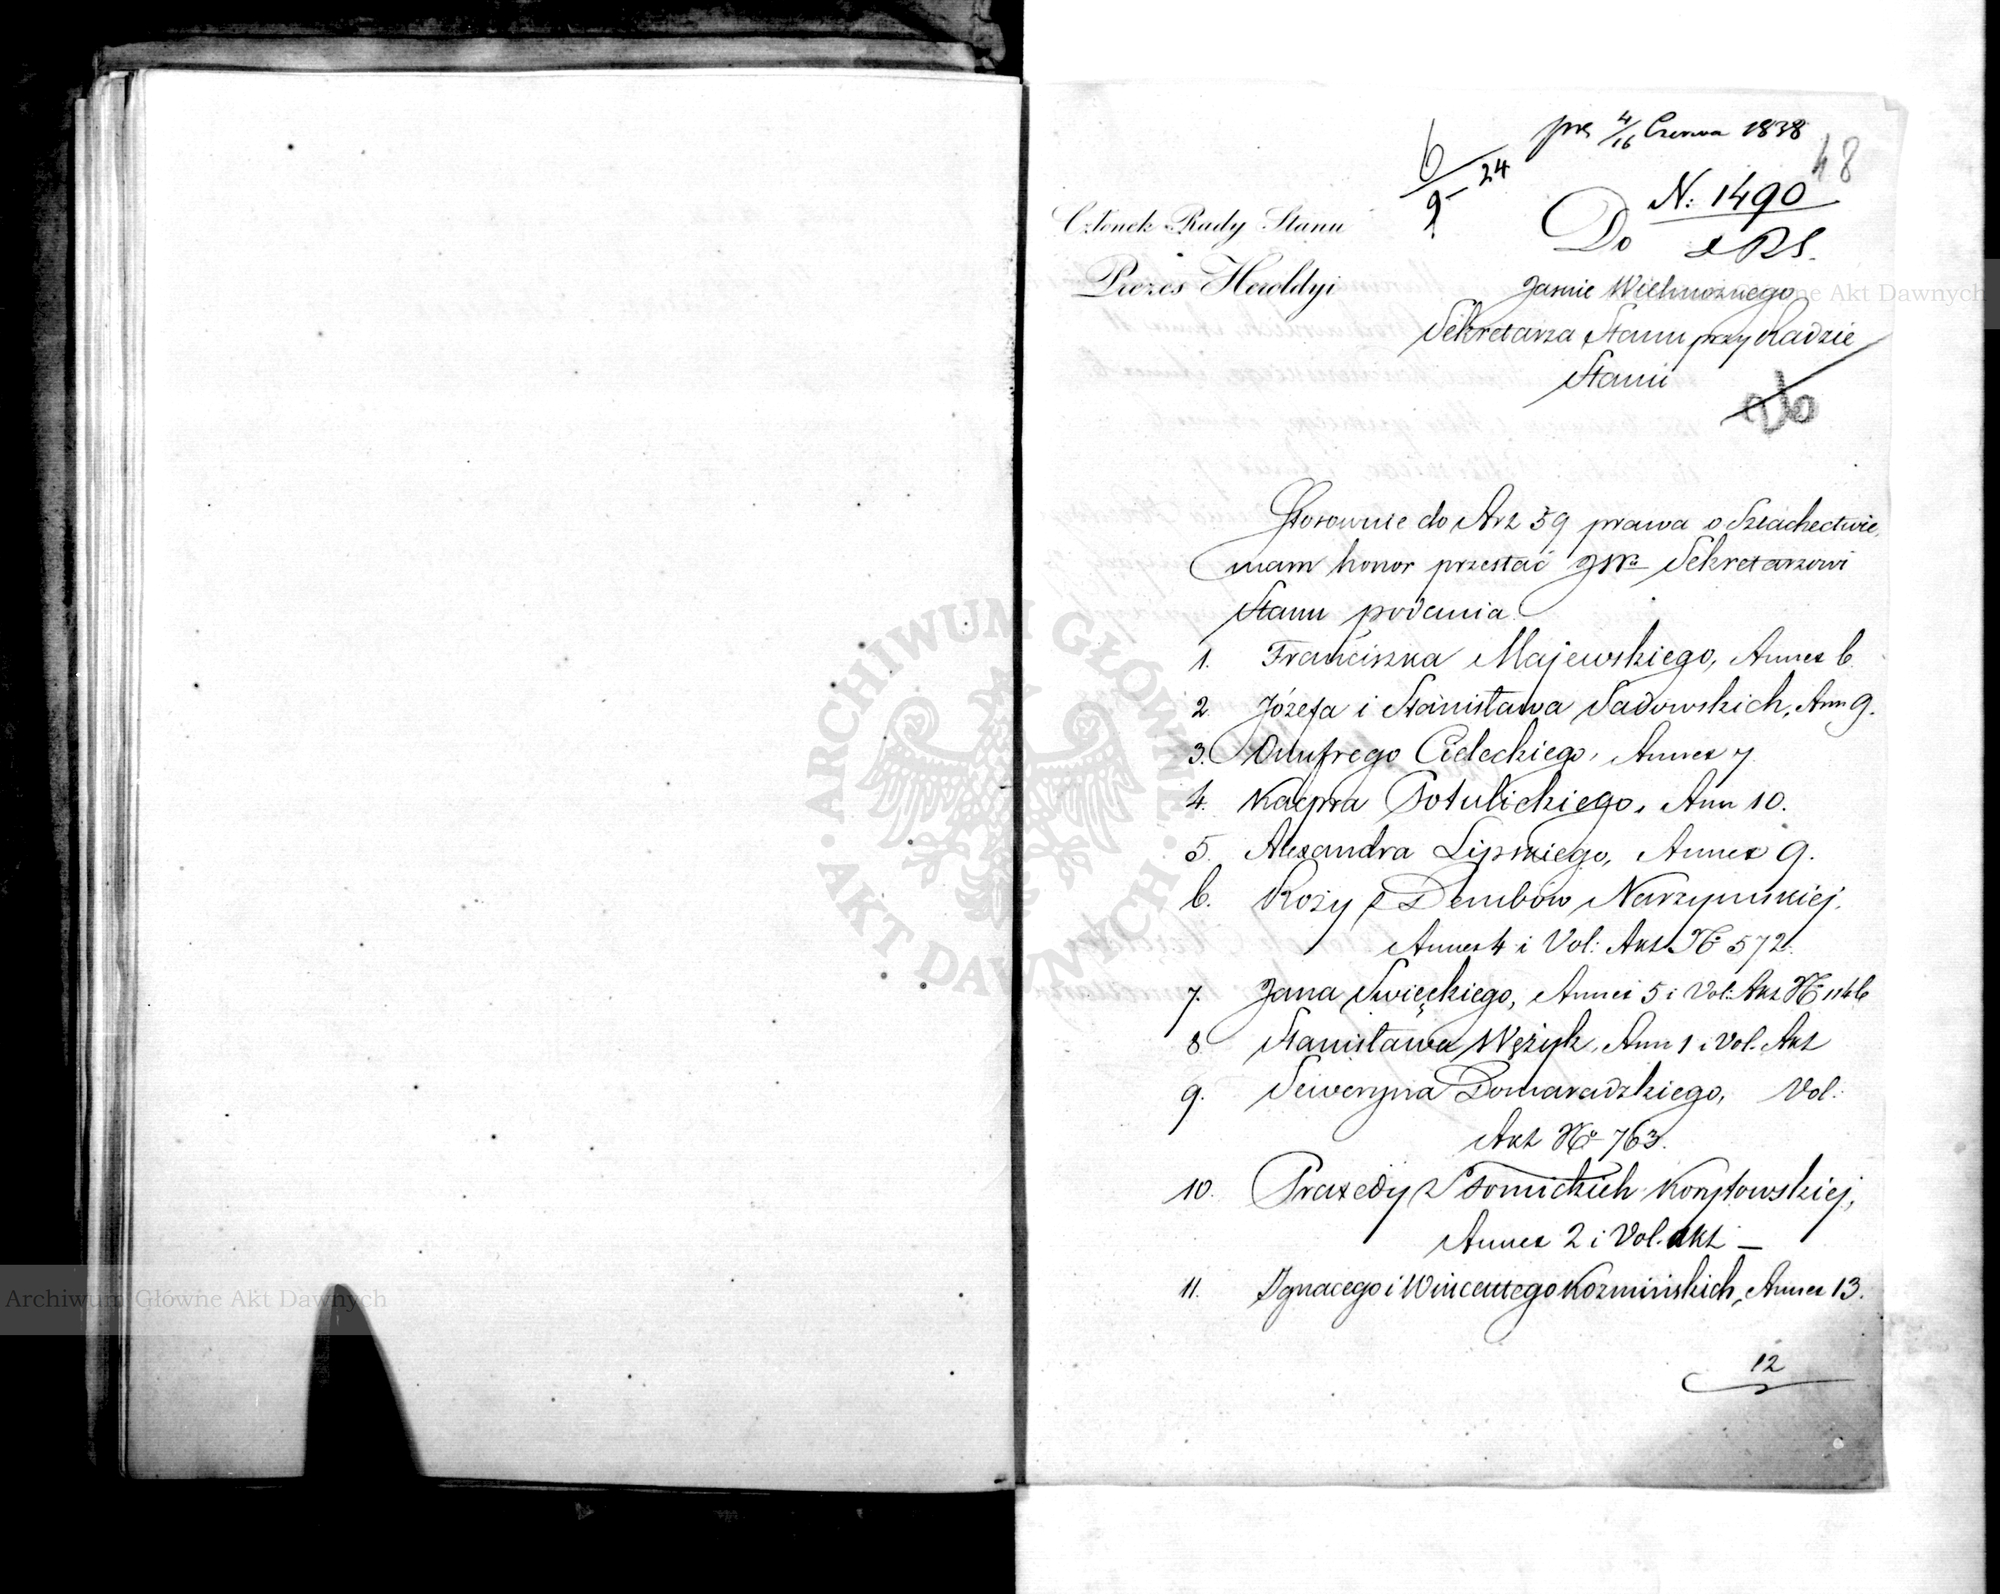 prez 4/16 Czerwca 1838
48
6/9 - 24
N: 1490
Członek Rady Stanu
Do
Prezes Heroldyi
Jaśnie Wielmożnego
Sekretarza Stanu przy Radzie
Stanu
Stosownie do Art 59 prawa o Szlachectwie,
mam honor przesłać JWu Sekretarzowi
Stanu podania
1. Franciszka Majewskiego, Annex 6.
2 Józefa i Stanisława Sadowskich, Ann 9.
3. Onufrego Cieleckiego, Annex 7
4. Kacpra Potulickiego, Ann 10.
5. Alexandra Lipskiego, Annex 9.
6. Roży z Dembów Narzymskiej,
Annex 4 i Vol: Akt No 572.
7. Jana Swięckiego, Annex 5 i Vol: Akt No 1146
8 Stanisława Wężyk, Ann 1 i Vol. Akt
9. Seweryna Domaradzkiego, Vol:
Akt No 763.
10. Praxedy z Słomickich Korytowskiej,
Annex 2 i Vol. akt —
11. Ignacego i Wincentego Kozmińskich, Annex 13.
12
ARCHIWUM GŁÓWNE AKT DAWNYCH
Archiwum Główne Akt Dawnych
Główne Akt Dawnych